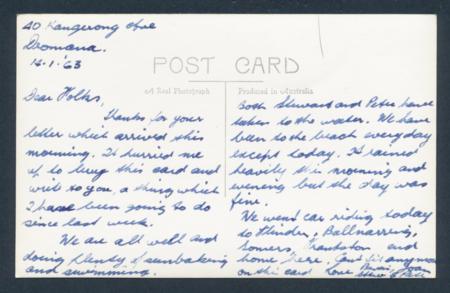 40 Kangerong Ave
Dromana.
14.1.'63
POST CARD
A Real Photograph
Produced in Australia
Dear Folks,
Thanks for your
letter which arrived this
morning. It hurried me
up to buy this card and
write to you, a thing which
I have been going to do
since last week.
We are all well and
doing plenty of sunbaking
and swimming.
Both Stewart and Peter have
taken to the water. We have
been to the beach everyday
except today. It rained
heavily this morning and
evening but the day was
fine.
We went car riding today
to Flinders, Ballnarring,
Somers, Frankston and
home here. Can't fit anymore
on this card Love Joan
Stew & Pete